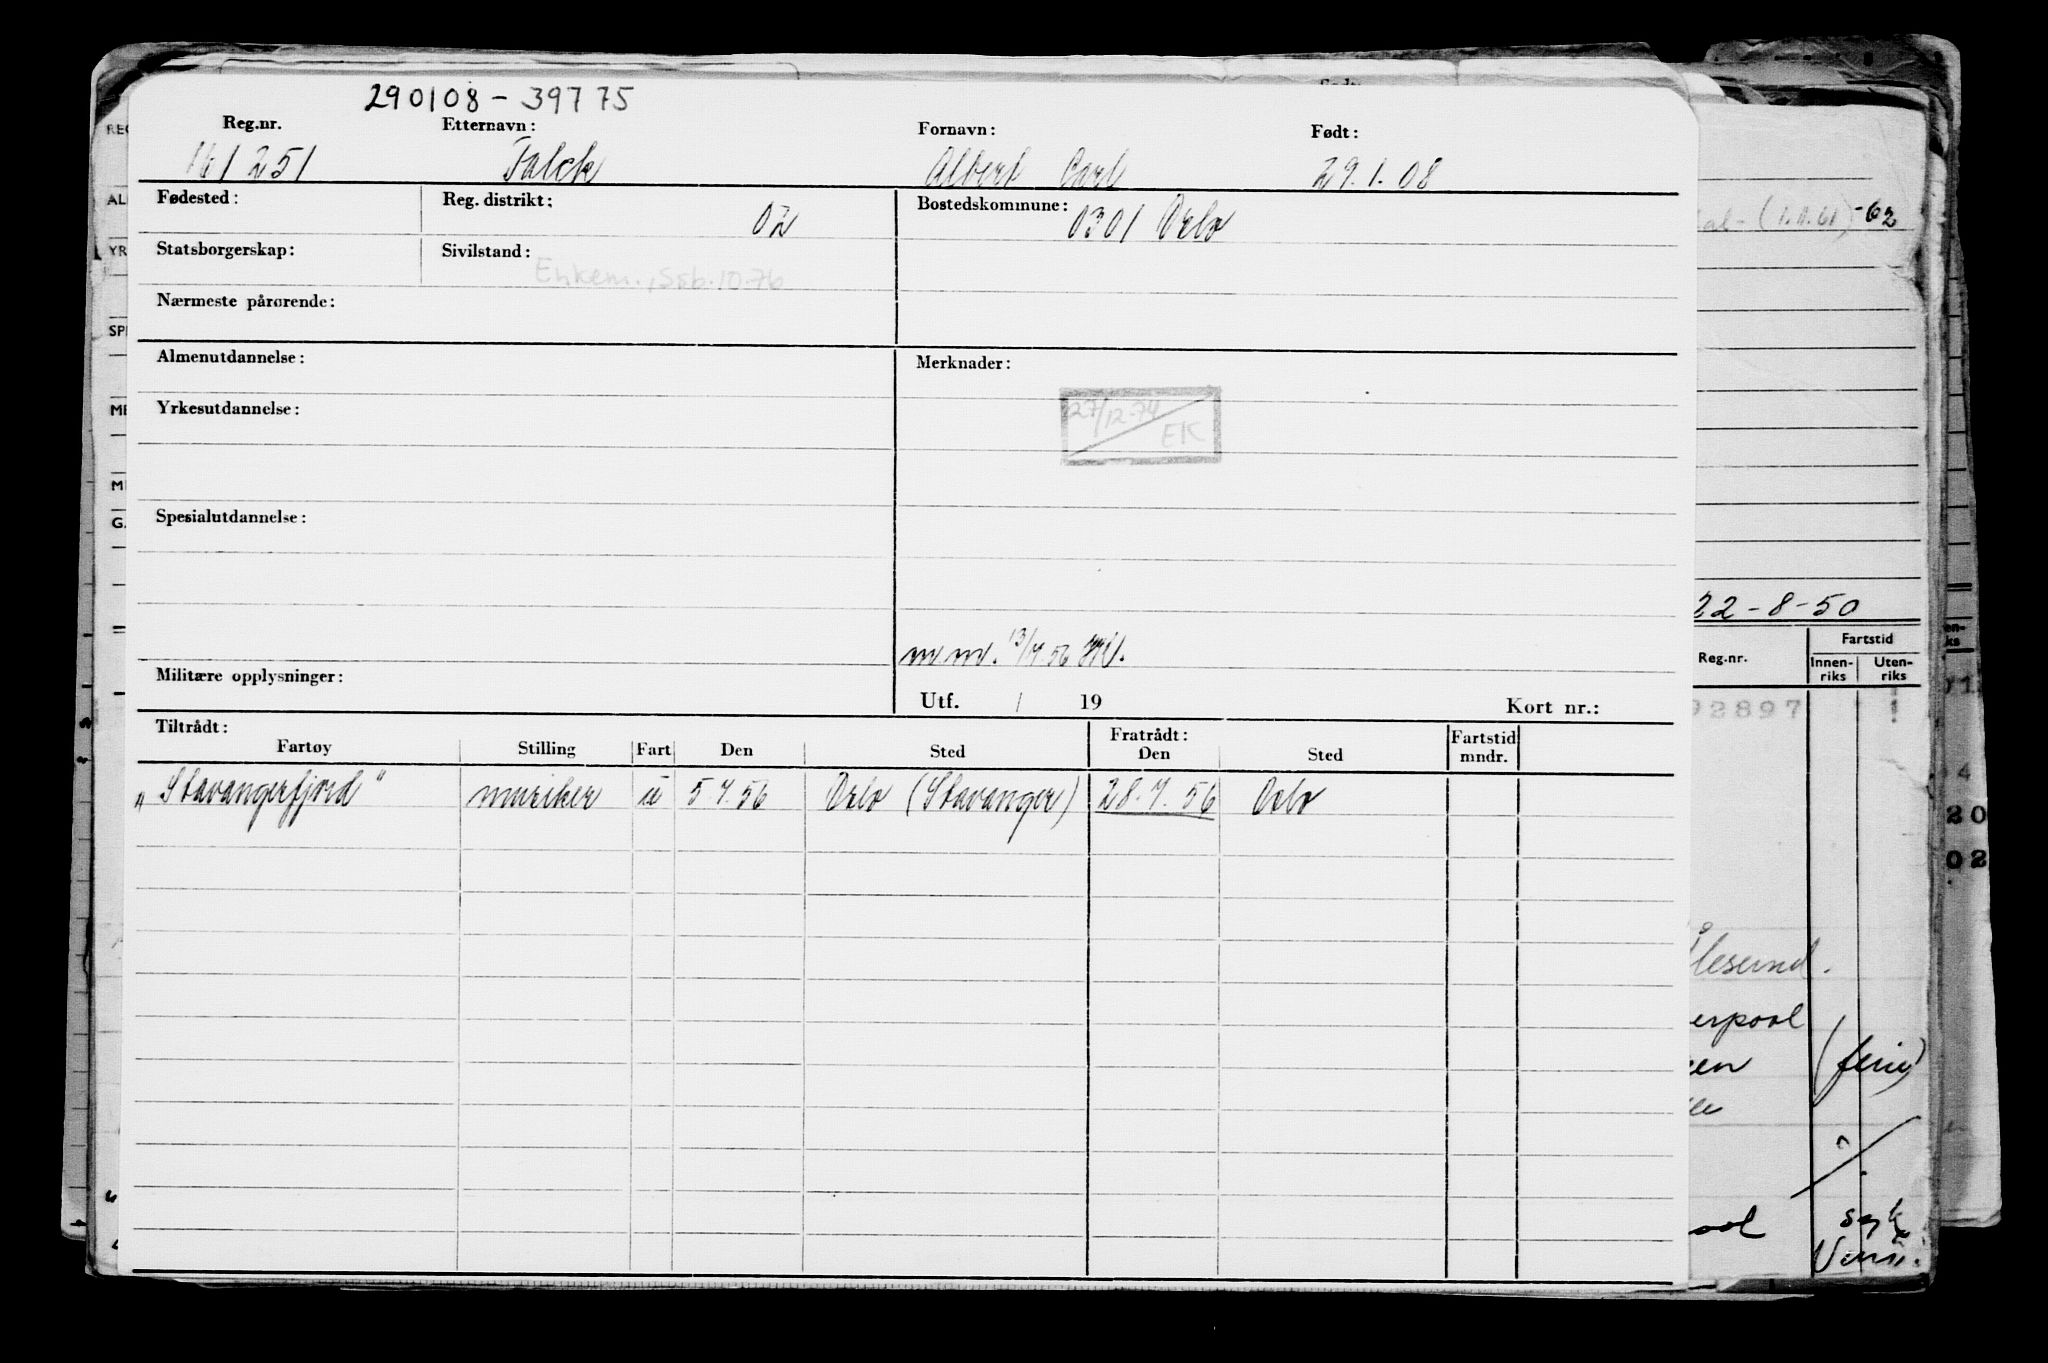 290108 - 39775
Reg.nr. Etternavn: Fornavn: Født:
161251 Falck Albert Carl 29.1.08
Fødested: Reg. distrikt: 02 Bostedskommune: 0301 Oslo
Statsborgerskap: Sivilstand: Enkem., Ssb. 10.76
Nærmeste pårørende:
Almenutdannelse: Merknader:
27/12-74 EK
Yrkesutdannelse:
Spesialutdannelse:
m m. 13/7 56
Militære opplysninger: Utf. / 19 Kort nr.:
Tiltrådt: Fratrådt: Fartstid
Fartøy Stilling Fart Den Sted Den Sted mndr.
"Stavangerfjord" musiker u 5.7.56 Oslo (Stavanger) 28.7.56 Oslo
(1.11.61) -62
22-8-50
Fartstid
Reg.nr. Innen-riks Uten-riks
92897
Ålesund.
erpool
(ferie)
ool syk
20
02